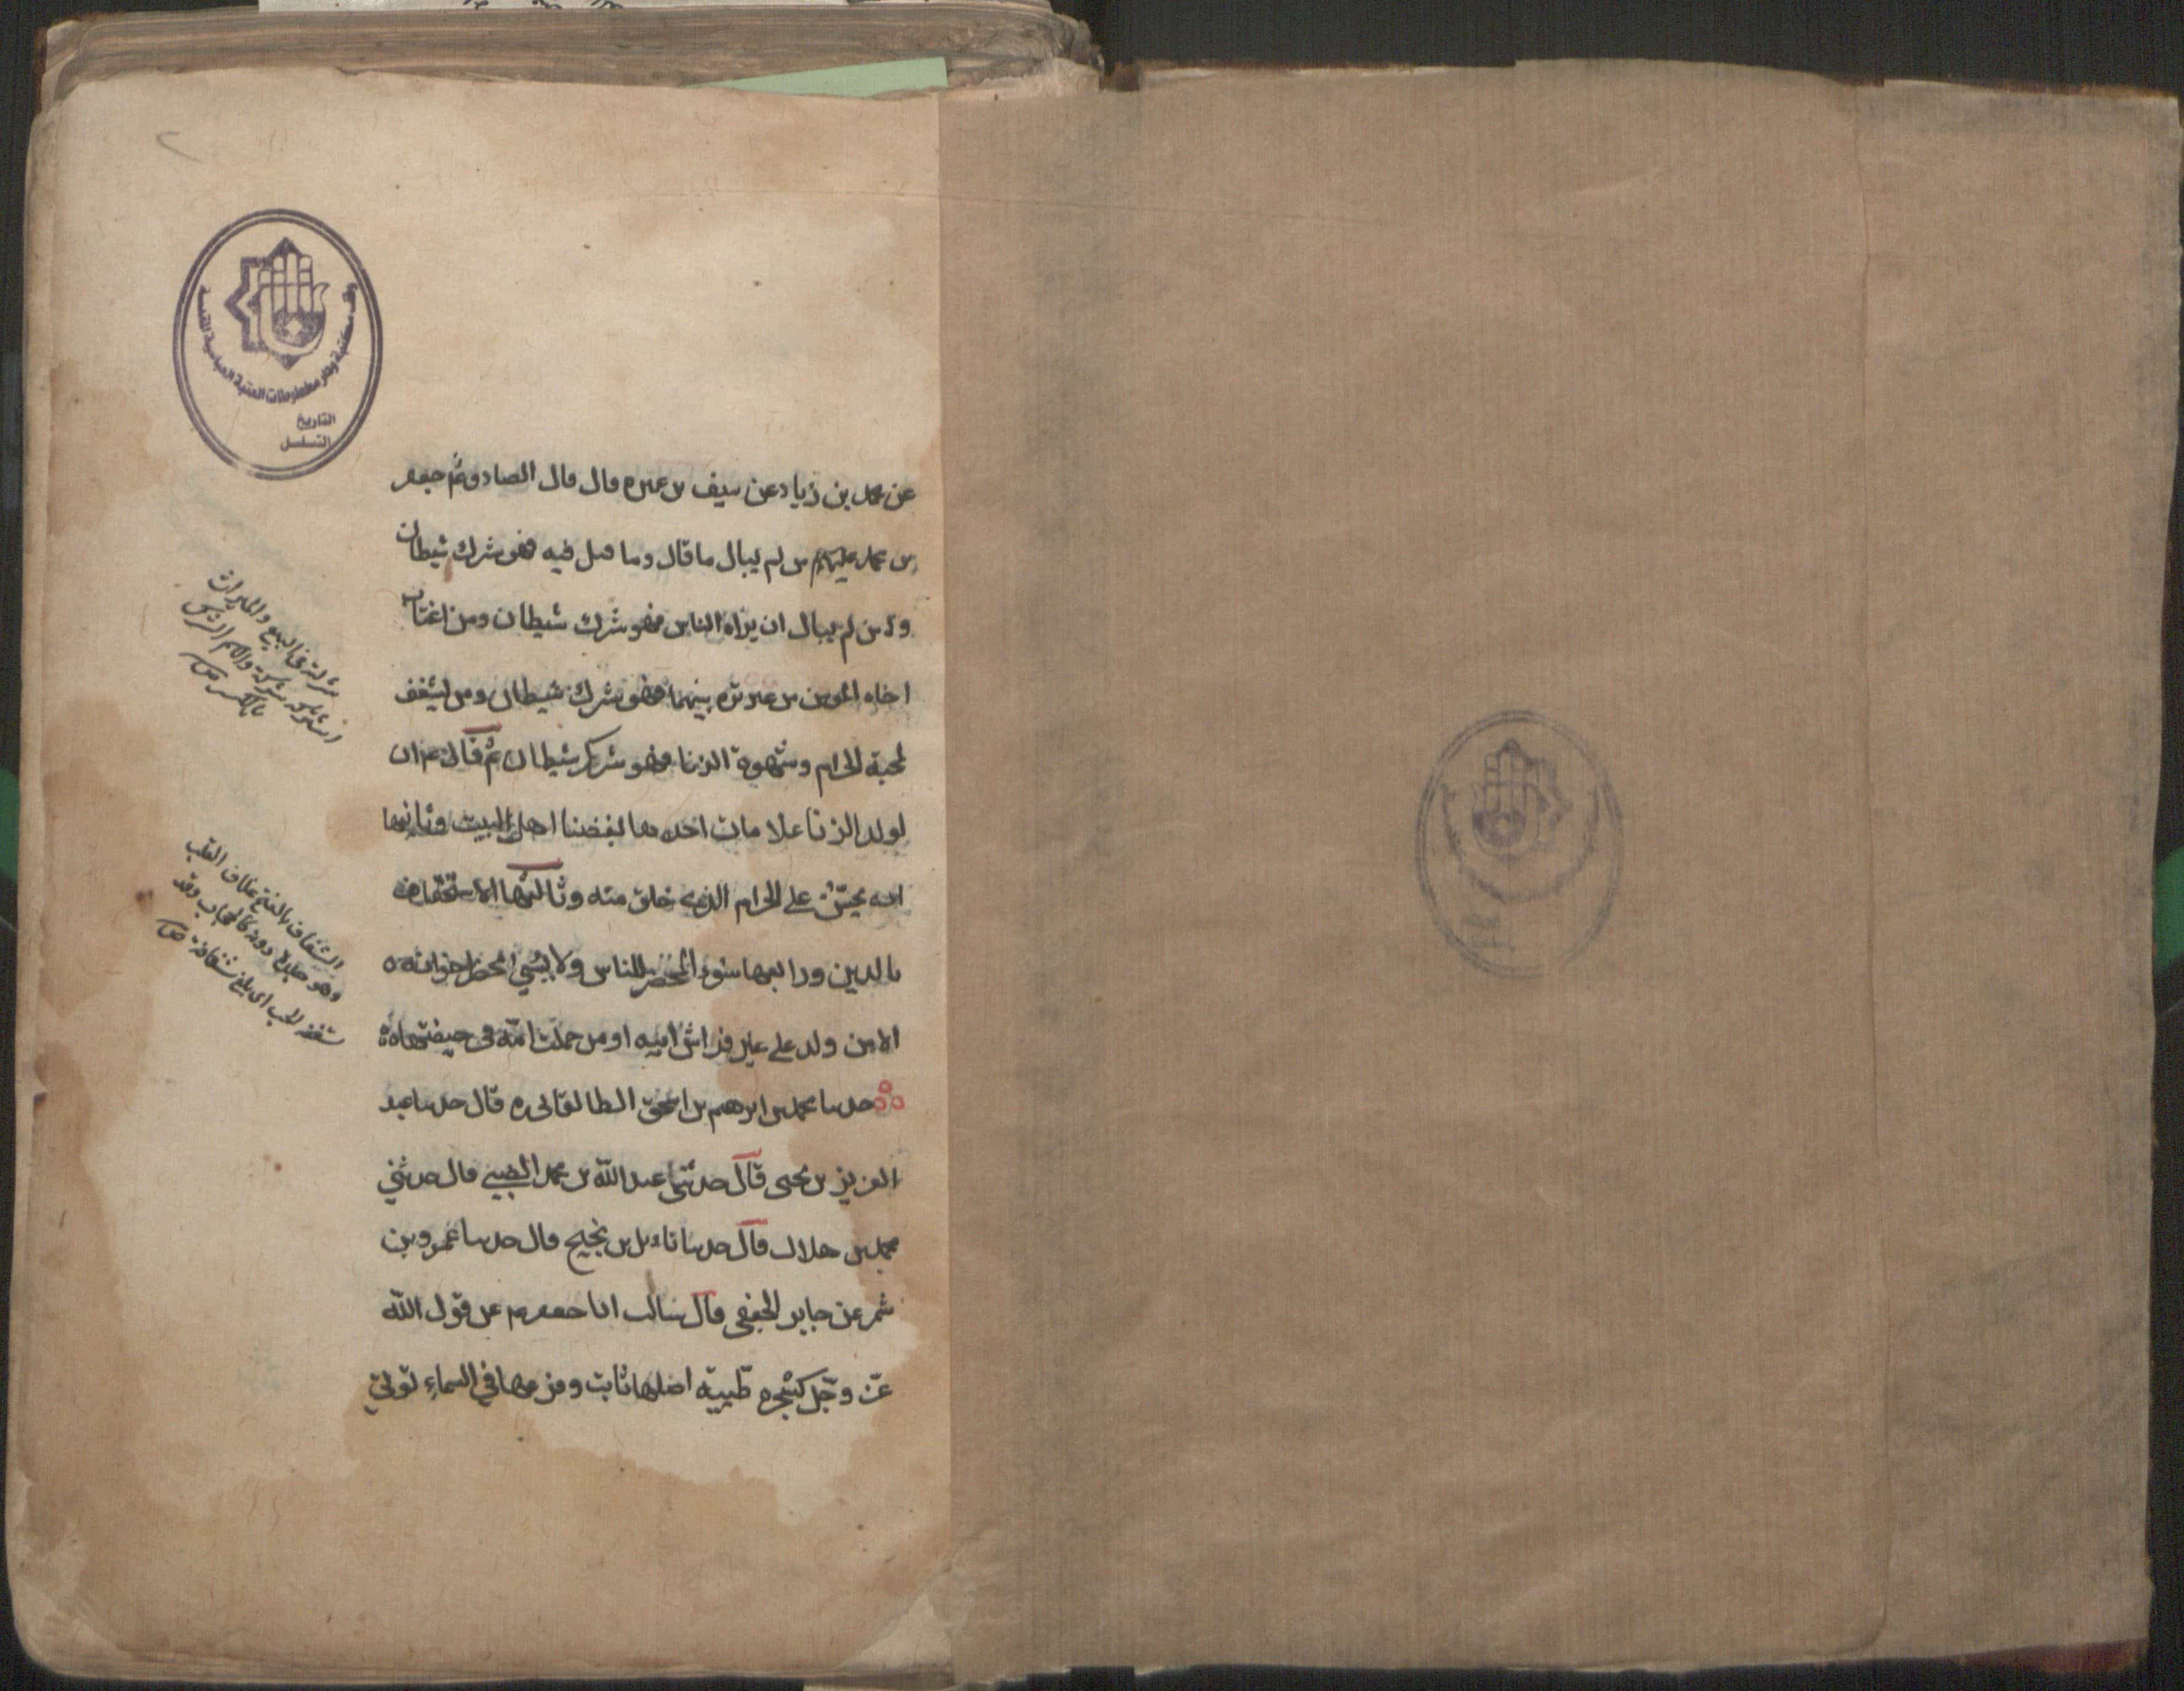 عن محمد بن زياد عن سيف بن عميره قال قال الصادق جعفر
بن محمد عليهما من لم يبال ما قال وما قيل فيه فهو شرك شيطان
ومن لم يبال ان يراه الناس فهو شرك شيطان ومن اغتاب
اخاه المومن من غير تره بينهما فهو شرك شيطان ومن شغف
لمحبة الحرام وشهوة الزنا فهو شرك شيطان ثم قال ع م ان
لولد الزنا علامات احدها بغضنا اهل البيت وثانيها
انه يحن على الحرام الذى خلق منه وثالثها الاستخفاف
بالدين ورابعها سوء المحضر للناس ولا يسي محضر اخوانه
الا من ولد على غير فراش ابيه او من حملت امه فى حيضتها
حدثنا محمد بن ابرهيم بن اسحق الطالقانى ره قال حدثنا عبد
العزيز بن يحيى قال حدثنى عبد الله بن محمد الضبى قال حدثني
محمد بن هلال قال حدثنا نايل بن نجيح قال حدثنا عمرو بن
شمر عن جابر الجعفى قال سالت ابا جعفر م عن قول الله
عز وجل كشجرة طيبة اصلها ثابت وفرعها في السماء تؤتى
شركته فى البيع والميراث
اشركه شركة والاسم الشرك
بالكسر ص
الشغاف بالفتح غلاف القلب
وهو جلدة دونه كالحجاب وقد
شغفه الحب اى بلغ شغافه ص
وقف مكتبة ودار مخطوطات العتبة العباسية المقدسة
التاريخ
التسلسل